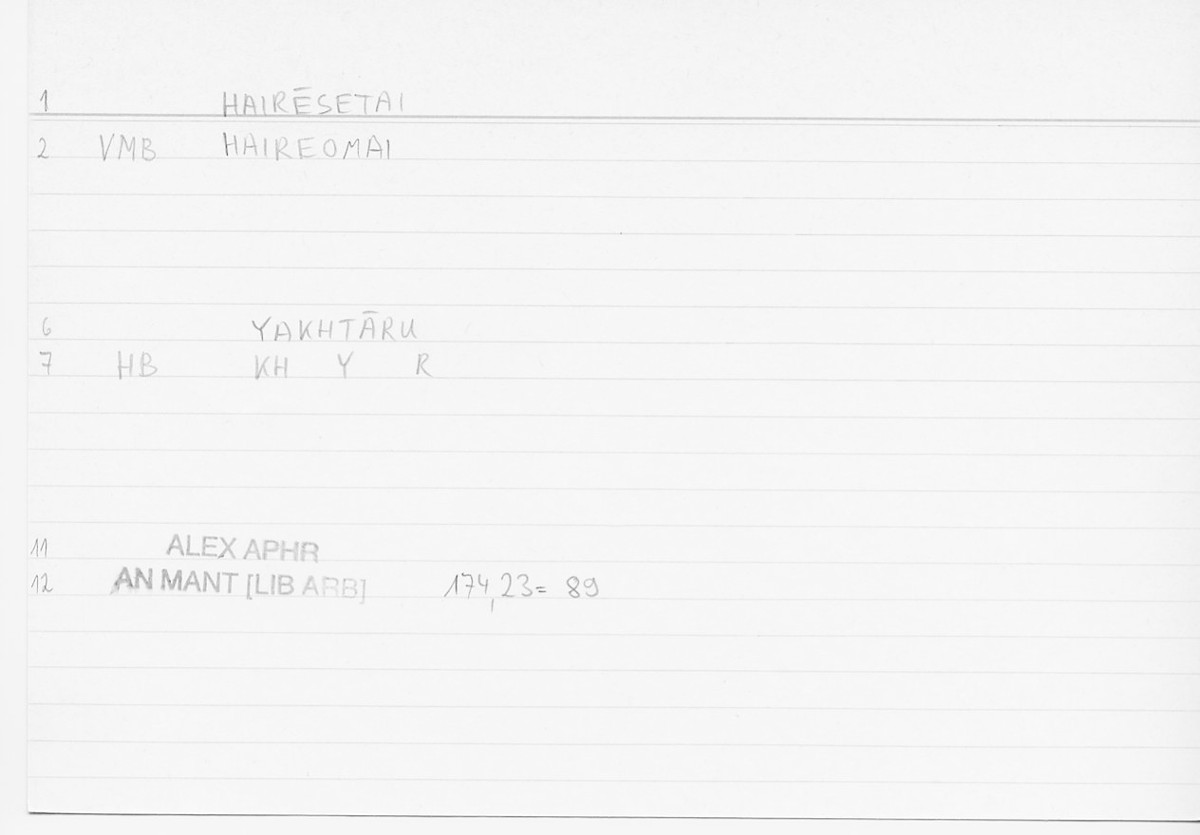 1 HAIRĒSETAI
2 VMB HAIREOMAI
6 YAKHTĀRU
7 HB KH Y R
11 ALEX APHR
12 AN MANT [LIB ARB] 174,23= 89